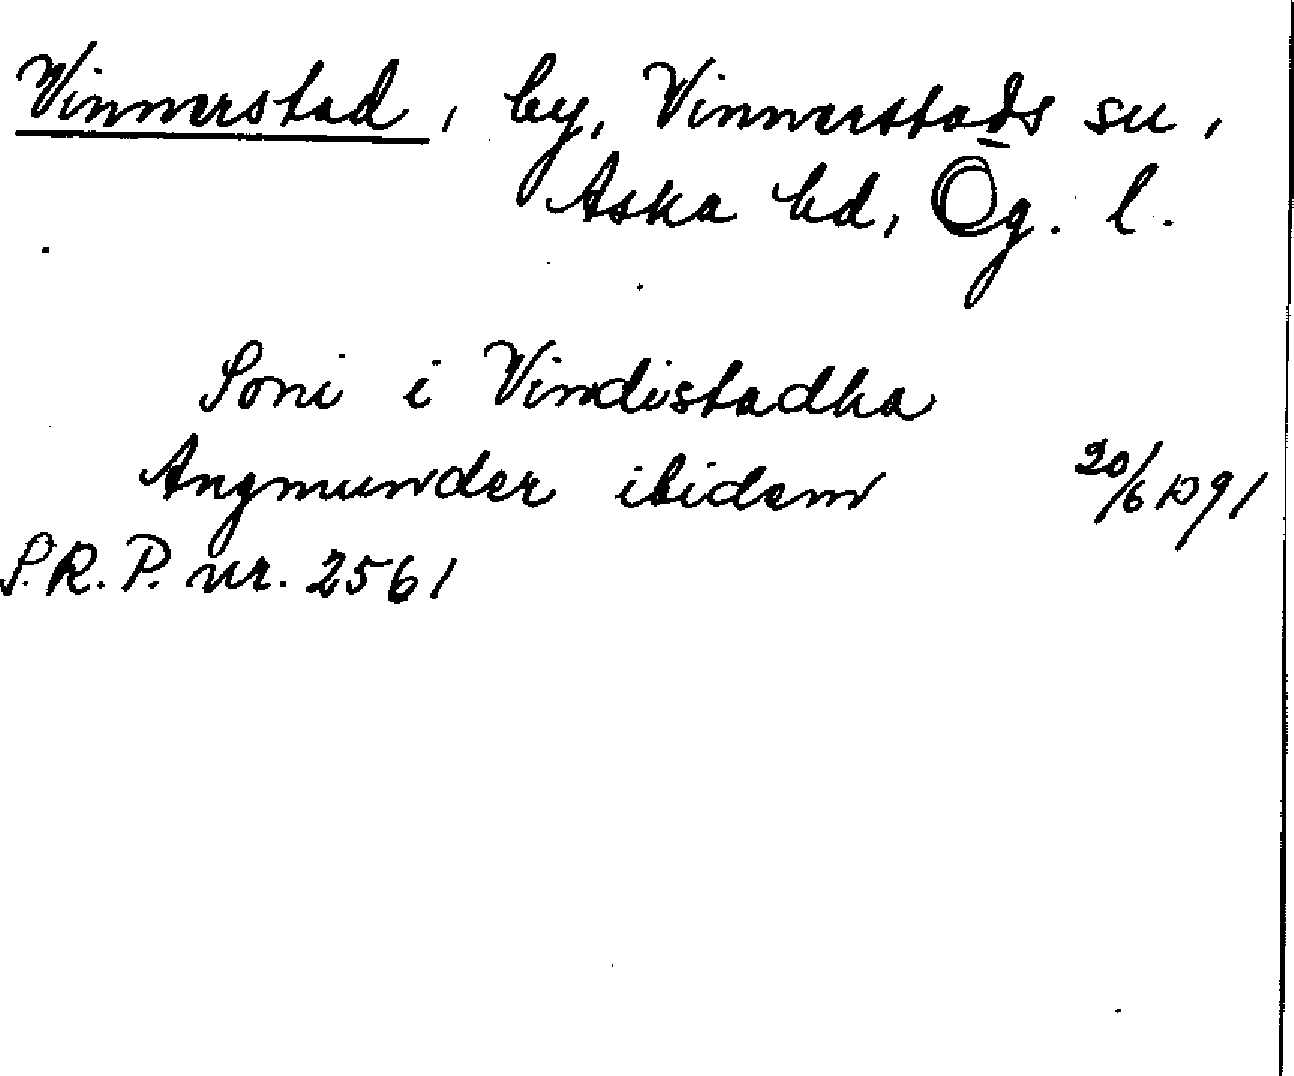 Vinnerstad, by, Vinnerstads sn,
Aska hd, Ög. l.
Soni i Vindistadha
Angmunder ibidem 20/6 1391
S.R.P. nr. 2561